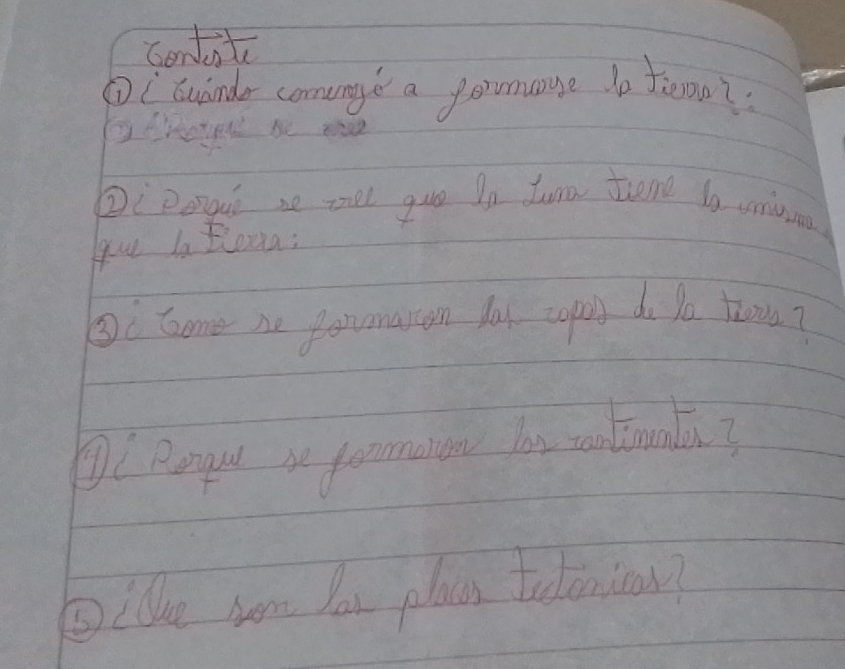 Conteste
① ¿ Cuándo comenzó a formarse la tierra?:
② ¿ Porqué se cree que la Luna tiene la misma
que la tierra:
③ ¿ Como se formaron las capas de la tierra?
④ ¿ Porque se formaron los continentes?
⑤ ¿Que son las placas tectónicas?